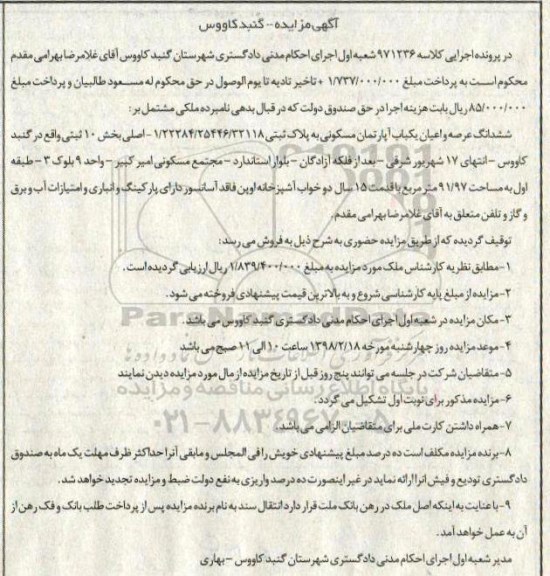 آگهی مزایده - گنبد کاووس
در پرونده اجرایی کلاسه ۹۷۱۲۳۶ شعبه اول اجرای احکام مدنی دادگستری شهرستان گنبد کاووس آقای غلامرضا بهرامی مقدم
محکوم است به پرداخت مبلغ ۱/۷۳۷/۰۰۰/۰۰۰ + تاخیر تادیه تا یوم الوصول در حق محکوم له مسعود طالبیان و پرداخت مبلغ
۸۵/۰۰۰/۰۰۰ ریال بابت هزینه اجرا در حق صندوق دولت که در قبال بدهی نامبرده ملکی مشتمل بر:
ششدانگ عرصه و اعیان یکباب آپارتمان مسکونی به پلاک ثبتی ۱/۲۲۲۸۴/۲۵۴۴۶/۳۲۱۱۸ - اصلی بخش ۱۰ ثبتی واقع در گنبد
کاووس - انتهای ۱۷ شهریور شرقی - بعد از فلکه آزادگان - بلوار استاندارد - مجتمع مسکونی امیر کبیر - واحد ۹ بلوک ۳ - طبقه
اول به مساحت ۹۱/۹۷ متر مربع با قدمت ۱۵ سال دو خواب آشپزخانه اوپن فاقد آسانسور دارای پارکینگ و انباری و امتیازات آب و برق
و گاز و تلفن متعلق به آقای غلامرضا بهرامی مقدم.
توقیف گردیده که از طریق مزایده حضوری به شرح ذیل به فروش می رسد:
۱- مطابق نظریه کارشناس ملک مورد مزایده به مبلغ ۱/۸۳۹/۴۰۰/۰۰۰ ریال ارزیابی گردیده است.
۲- مزایده از مبلغ پایه کارشناسی شروع و به بالاترین قیمت پیشنهادی فروخته می شود.
۳- مکان مزایده در شعبه اول اجرای احکام مدنی دادگستری گنبد کاووس می باشد.
۴- موعد مزایده روز چهارشنبه مورخه ۱۳۹۸/۲/۱۸ ساعت ۱۰ الی ۱۱ صبح می باشد
۵- متقاضیان شرکت در جلسه می توانند پنج روز قبل از تاریخ مزایده از مال مورد مزایده دیدن نمایند
۶- مزایده مذکور برای نوبت اول تشکیل می گردد.
۷- همراه داشتن کارت ملی برای متقاضیان الزامی می باشد.
۸- برنده مزایده مکلف است ده درصد مبلغ پیشنهادی خویش را فی المجلس و مابقی آنرا حداکثر ظرف مهلت یک ماه به صندوق
دادگستری تودیع و فیش آنرا ارائه نماید در غیر اینصورت ده درصد واریزی به نفع دولت ضبط و مزایده تجدید خواهد شد.
۹- با عنایت به اینکه اصل ملک در رهن بانک ملت قرار دارد انتقال سند به نام برنده مزایده پس از پرداخت طلب بانک و فک رهن از
آن به عمل خواهد آمد.
مدیر شعبه اول اجرای احکام مدنی دادگستری شهرستان گنبد کاووس - بهاری
ParsNamadData
پایگاه اطلاع رسانی مناقصه و مزایده